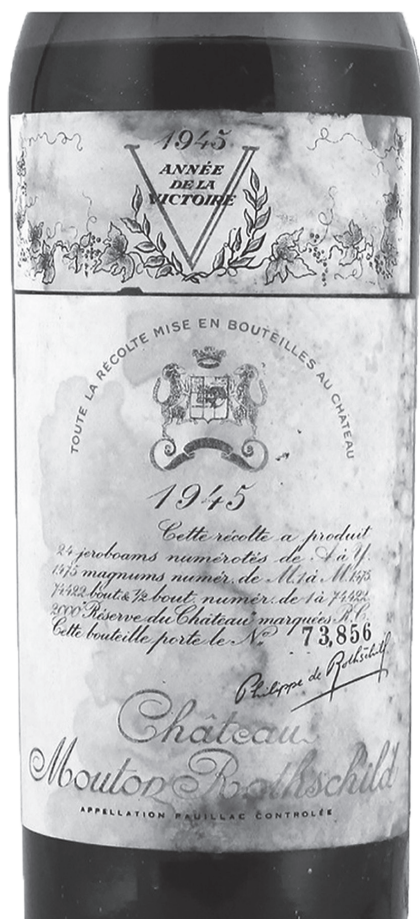 1945
ANNÉE
DE LA
VICTOIRE
TOUTE LA RÉCOLTE MISE EN BOUTEILLES AU CHATEAU
1945
Cette récolte a produit
24 jeroboams numérotés de A à Y.
1475 magnums numér. de M.1 à M.1475
74422 bout & ½ bout. numér. de 1 à 74422
2000 Réserve du Château marquées R.C.
Cette bouteille porte le Nº 73,856
Philippe de Rothschild
Château
Mouton Rothschild
APPELLATION PAUILLAC CONTROLÉE